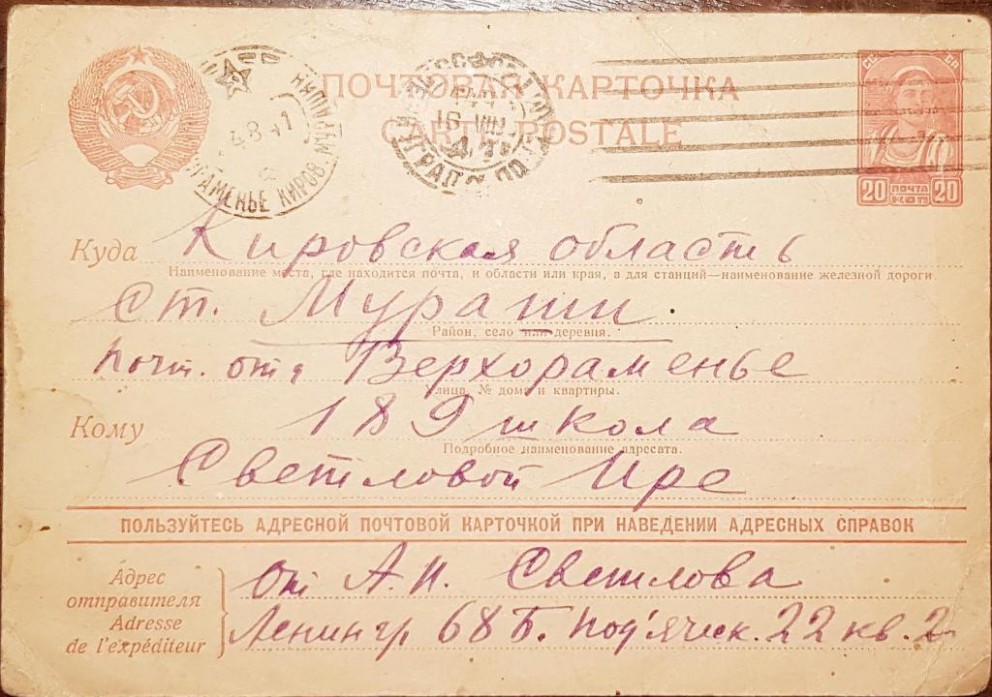 ПОЧТОВАЯ КАРТОЧКА
CARTE POSTALE
20 ПОЧТА КОП 20
Куда Кировская область
Наименование места, где находится почта, и области или края, а для станций—наименование железной дороги.
Ст. Мураши
Район, село или деревня.
почт. отд Верхораменье
Улица, № дома и квартиры.
Кому 189 школа
Подробное наименование адресата.
Светловой Ире
ПОЛЬЗУЙТЕСЬ АДРЕСНОЙ ПОЧТОВОЙ КАРТОЧКОЙ ПРИ НАВЕДЕНИИ АДРЕСНЫХ СПРАВОК
Адрес отправителя
Adresse de l'expéditeur
От А. И. Светлова
Ленингр 68 Б. Под'яческ. 22 кв. 2